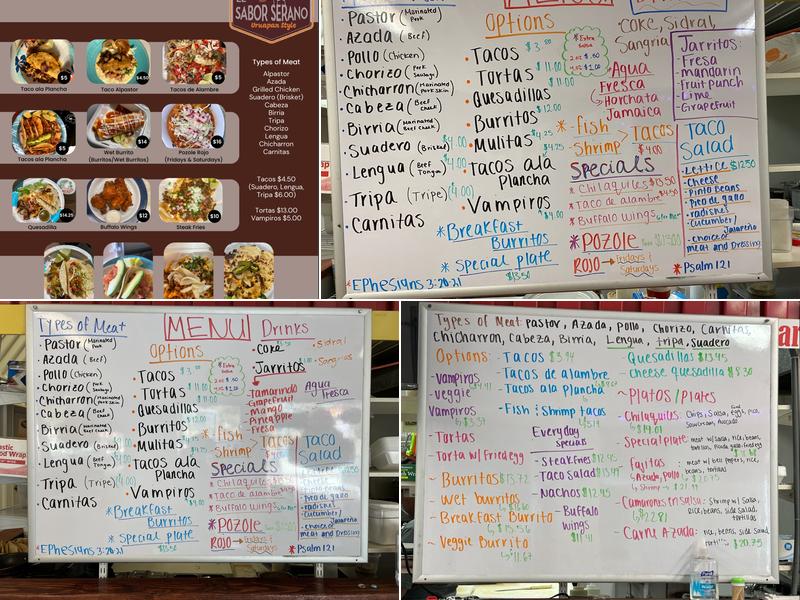 SABOR SERANO
Uruapan Style
$5
Taco ala Plancha
$4.50
Taco Alpastor
$5
Tacos de Alambre
$5
Tacos ala Plancha
$14
Wet Burrito
(Burritos/Wet Burritos)
$16
Pozole Rojo
(Fridays & Saturdays)
$14.25
Quesadilla
$12
Buffalo Wings
$10
Steak Fries
Types of Meat
Alpastor
Azada
Grilled Chicken
Suadero (Brisket)
Cabeza
Birria
Tripa
Chorizo
Lengua
Chicharron
Carnitas
Tacos $4.50
(Suadero, Lengua,
Tripa $6.00)
Tortas $13.00
Vampiros $5.00
Pastor (Marinated Pork)
Azada (Beef)
Pollo (Chicken)
Chorizo (Pork Sausage)
Chicharron (Marinated Pork Skin)
Cabeza (Beef Cheek)
Birria (Marinated Beef Cheek)
Suadero (Brisket) $4.00
Lengua (Beef Tongue) $4.00
Tripa (Tripe) $4.00
Carnitas
*Ephesians 3:20-21
Options
Tacos $3.00
Tortas $11.00
Quesadillas $11.00
Burritos $12.00
Mulitas $4.25
Tacos ala Plancha
Vampiros $4.00
*Breakfast Burritos
*Special plate
$13.50
*Extra Salsa
2oz $.50
4oz $1.00
*-fish
-Shrimp > Tacos
$4.00
Coke, Sidral,
Sangria
Agua
Fresca
Horchata
Jamaica
Jarritos:
- Fresa
- mandarin
- fruit punch
- Lime
- Grapefruit
Specials
*Chilaquiles $13.50
*Taco de alambre $4.50
*Buffalo wings
*Pozole
ROJO → Fridays & Saturdays
Taco
Salad
-Lettuce $12.50
-Cheese
-Pinto beans
-Pico de gallo
-radishes
-cucumber/Jalapeño
-choice of
meat and Dressing
*Psalm 121
Types of Meat
Pastor (Marinated Pork)
Azada (Beef)
Pollo (Chicken)
Chorizo (Pork Sausage)
Chicharron (Marinated Pork Skin)
Cabeza (Beef Cheek)
Birria (Marinated Beef Cheek)
Suadero (Brisket) $4.00
Lengua (Beef Tongue) $4.00
Tripa (Tripe) $4.00
Carnitas
*Ephesians 3:20-21
MENU
Options
Tacos $3.00
Tortas $11.00
Quesadillas $11.00
Burritos $12.00
Mulitas $4.25
Tacos ala Plancha
Vampiros $4.00
*Breakfast Burritos
*Special plate
$13.50
*Extra Salsa
2oz $.50
4oz $1.00
*-fish
-Shrimp > Tacos
Drinks
Coke
Sidral
Sangrias
Jarritos
Tamarindo
Grapefruit
Mango
Pineapple
Fresa
Agua
Fresca
Specials
*Chilaquiles
*Taco de alambre
*Buffalo wings
*Pozole
ROJO → Fridays & Saturdays
Taco
Salad
-Lettuce
-Cheese
-Pinto beans
-Pico de gallo
-radishes
-cucumber/Jalapeño
-choice of
meat and Dressing
*Psalm 121
Types of Meat Pastor, Azada, Pollo, Chorizo, Carnitas,
Chicharron, Cabeza, Birria, Lengua, Tripa, Suadero
Options:
-Vampiros
-Veggie
Vampiros
Tortas
Torta w/ Fried egg
Burritos $13.72
Wet burritos
Breakfast Burrito
Veggie Burrito
$11.67
-Tacos $3.94
-Tacos de alambre
-Tacos ala plancha
-Fish & Shrimp tacos
Everyday
specials
-Steak Fries $12.45
-Taco Salad
-Nachos $12.45
-Buffalo
wings
$11.41
-Quesadillas $13.45
-Cheese quesadilla $8.30
~Platos/Plates
-Chilaquiles: Chips, Salsa, Fried egg, rice,
Sour cream, Avocado
$14.01
-Special plate: meat w/ Salad, rice, beans,
tortillas
-Fajitas meat w/ bell peppers, rice,
beans, tortillas
Azada, Pollo: $20.75
Shrimp
-Camarones en salsa: Shrimp w/ Salsa,
rice, beans, side salad,
tortillas
$22.81
-Carne Azada: rice, beans, side Salad
$20.75